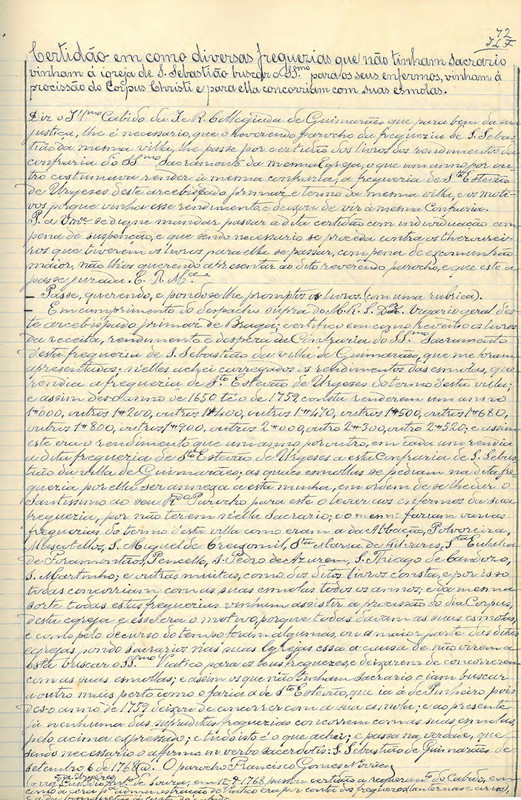 72
Certidão em como diversas freguerias que não tinham sacrario
vinham á igreja de S. Sebastião buscar o SS.mo para os seus enfermos, vinham á
procissão do Corpus Christi e para ella concorriam com suas esmolas.
Diz o Ill.mo Cabido da I. R. Collegiada de Guimarães, que para bem da sua
justiça, lhe é necessario, que o Reverendo parocho da freguezia de S. Sebas
tião da mesma villa, lhe passe por certidão dos livros dos rendimentos da
confraria do SS.mo Sacramento da mesma Egreja, o que um anno por ou
tro costumava render á mesma confraria, a freguezia de St.º Estevão
de Urgeses deste arcebispado primaz e termo da mesma villa, e o moti
vo porque vinha esse rendimento e deixou de vir á mesma Confraria.
P. a V. mce se digne mandar passar a dita certidão com individuação com
pena de suspenção, e que sendo necessario se proceda contra os thezourei
ros que tiverem os livros para ella se passar, com pena de excomunhão
maior, não lhos querendo apresentar ao dito reverendo parocho, e que esta a
passe jurada. E. R. M.cê
— Passe, querendo, e pondo-se-lhe promptos os livros (com uma rubrica).
— Em cumprimento do despacho supra do M. R. S. Dr. Vigario geral d'es
te arcebispado primaz de Braga; certifico em como revendo os livros
da receita, rendimento e despeza da Confraria do SS. Sacramento
d'esta freguezia de S. Sebastião da villa de Guimarães, que me foram
apresentados; n'elles achei carregados os rendimentos das esmolas, que
rendia a freguezia de St.º Estevão de Urgeses do termo desta villa;
e assim desde o anno de 1650 té o de 1757 consta renderem um anno
1$000, outros 1$200, outros 1$400, outros 1$470, outros 1$500, outros 1$680,
outros 1$800, outros 1$900, outros 2$000, outro 2$300, outro 2$520; e assim
este era o rendimento que um anno por outro, em cada um rendia
a dita freguezia de St.º Estevão de Urgeses a esta Confraria de S. Sebas
tião da villa de Guimarães, as quaes esmollas se pediam na dita fre
guezia por ella ser annexa a esta minha, em ordem de se lhe dar o
Santissimo ao seu R.do Parocho para este o levar aos enfermos da sua
freguezia, por não terem n'ella Sacrario; e o mesmo faziam varias
freguezias do termo d'esta villa como eram a da Abbação, Polvoreira,
Mascotellos, S. Miguel de Creixomil, St.ª Maria de Silvares, St.ª Eulalia
de Fermentões, Pencello, S. Pedro de Azurem, S. Thiago de Candoso,
S. Martinho; e outras muitas, como dos ditos livros consta, e por isso
todas concorriam com as suas esmolas todos os annos; e da mesma
sorte todas estas freguezias vinham assistir a procissão do dia Corpus,
d'esta egreja e esse era o motivo, porque todas davam as suas esmolas,
e como pelo decurso do tempo foram algumas, ou a maior parte das ditas
egrejas, pondo sacrarios nas suas Egrejas essa a causa de não virem a
esta buscar o SS.mo Viatico para os seus freguezes, e deixarem de concorrerem
com as suas esmollas; e assim os que não tinham sacrario o iam buscar
a outro mais perto como o fazia a de St.º Estevão, que ia á de Pinheiro, pois
desde o anno de 1757 deixou de concorrer com a sua esmola; e ao presente
já nenhuma das supraditas freguezias concorrem com as suas esmolas,
pelo acima expressado; e tudo isto é o que achei; e passa na verdade, que
sendo necessario o affirmo in verbo sacerdotis. S. Sebastião de Guimarães, de
setembro 6 de 1768 a. O parocho Francisco Gomes